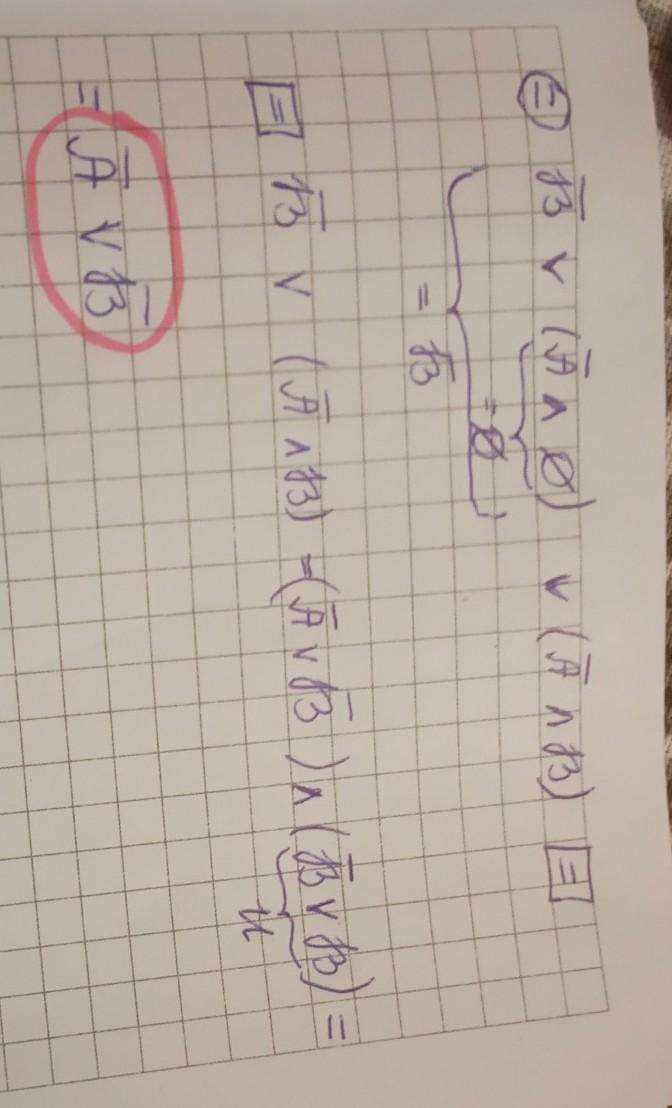 ⊜ B̅ ∨ (A̅ ∧ ∅) ∨ (A̅ ∧ B) ⊟
= ∅
= B̅
⊟ B̅ ∨ (A̅ ∧ B) = (A̅ ∨ B̅) ∧ (B̅ ∨ B) =
U
= A̅ ∨ B̅